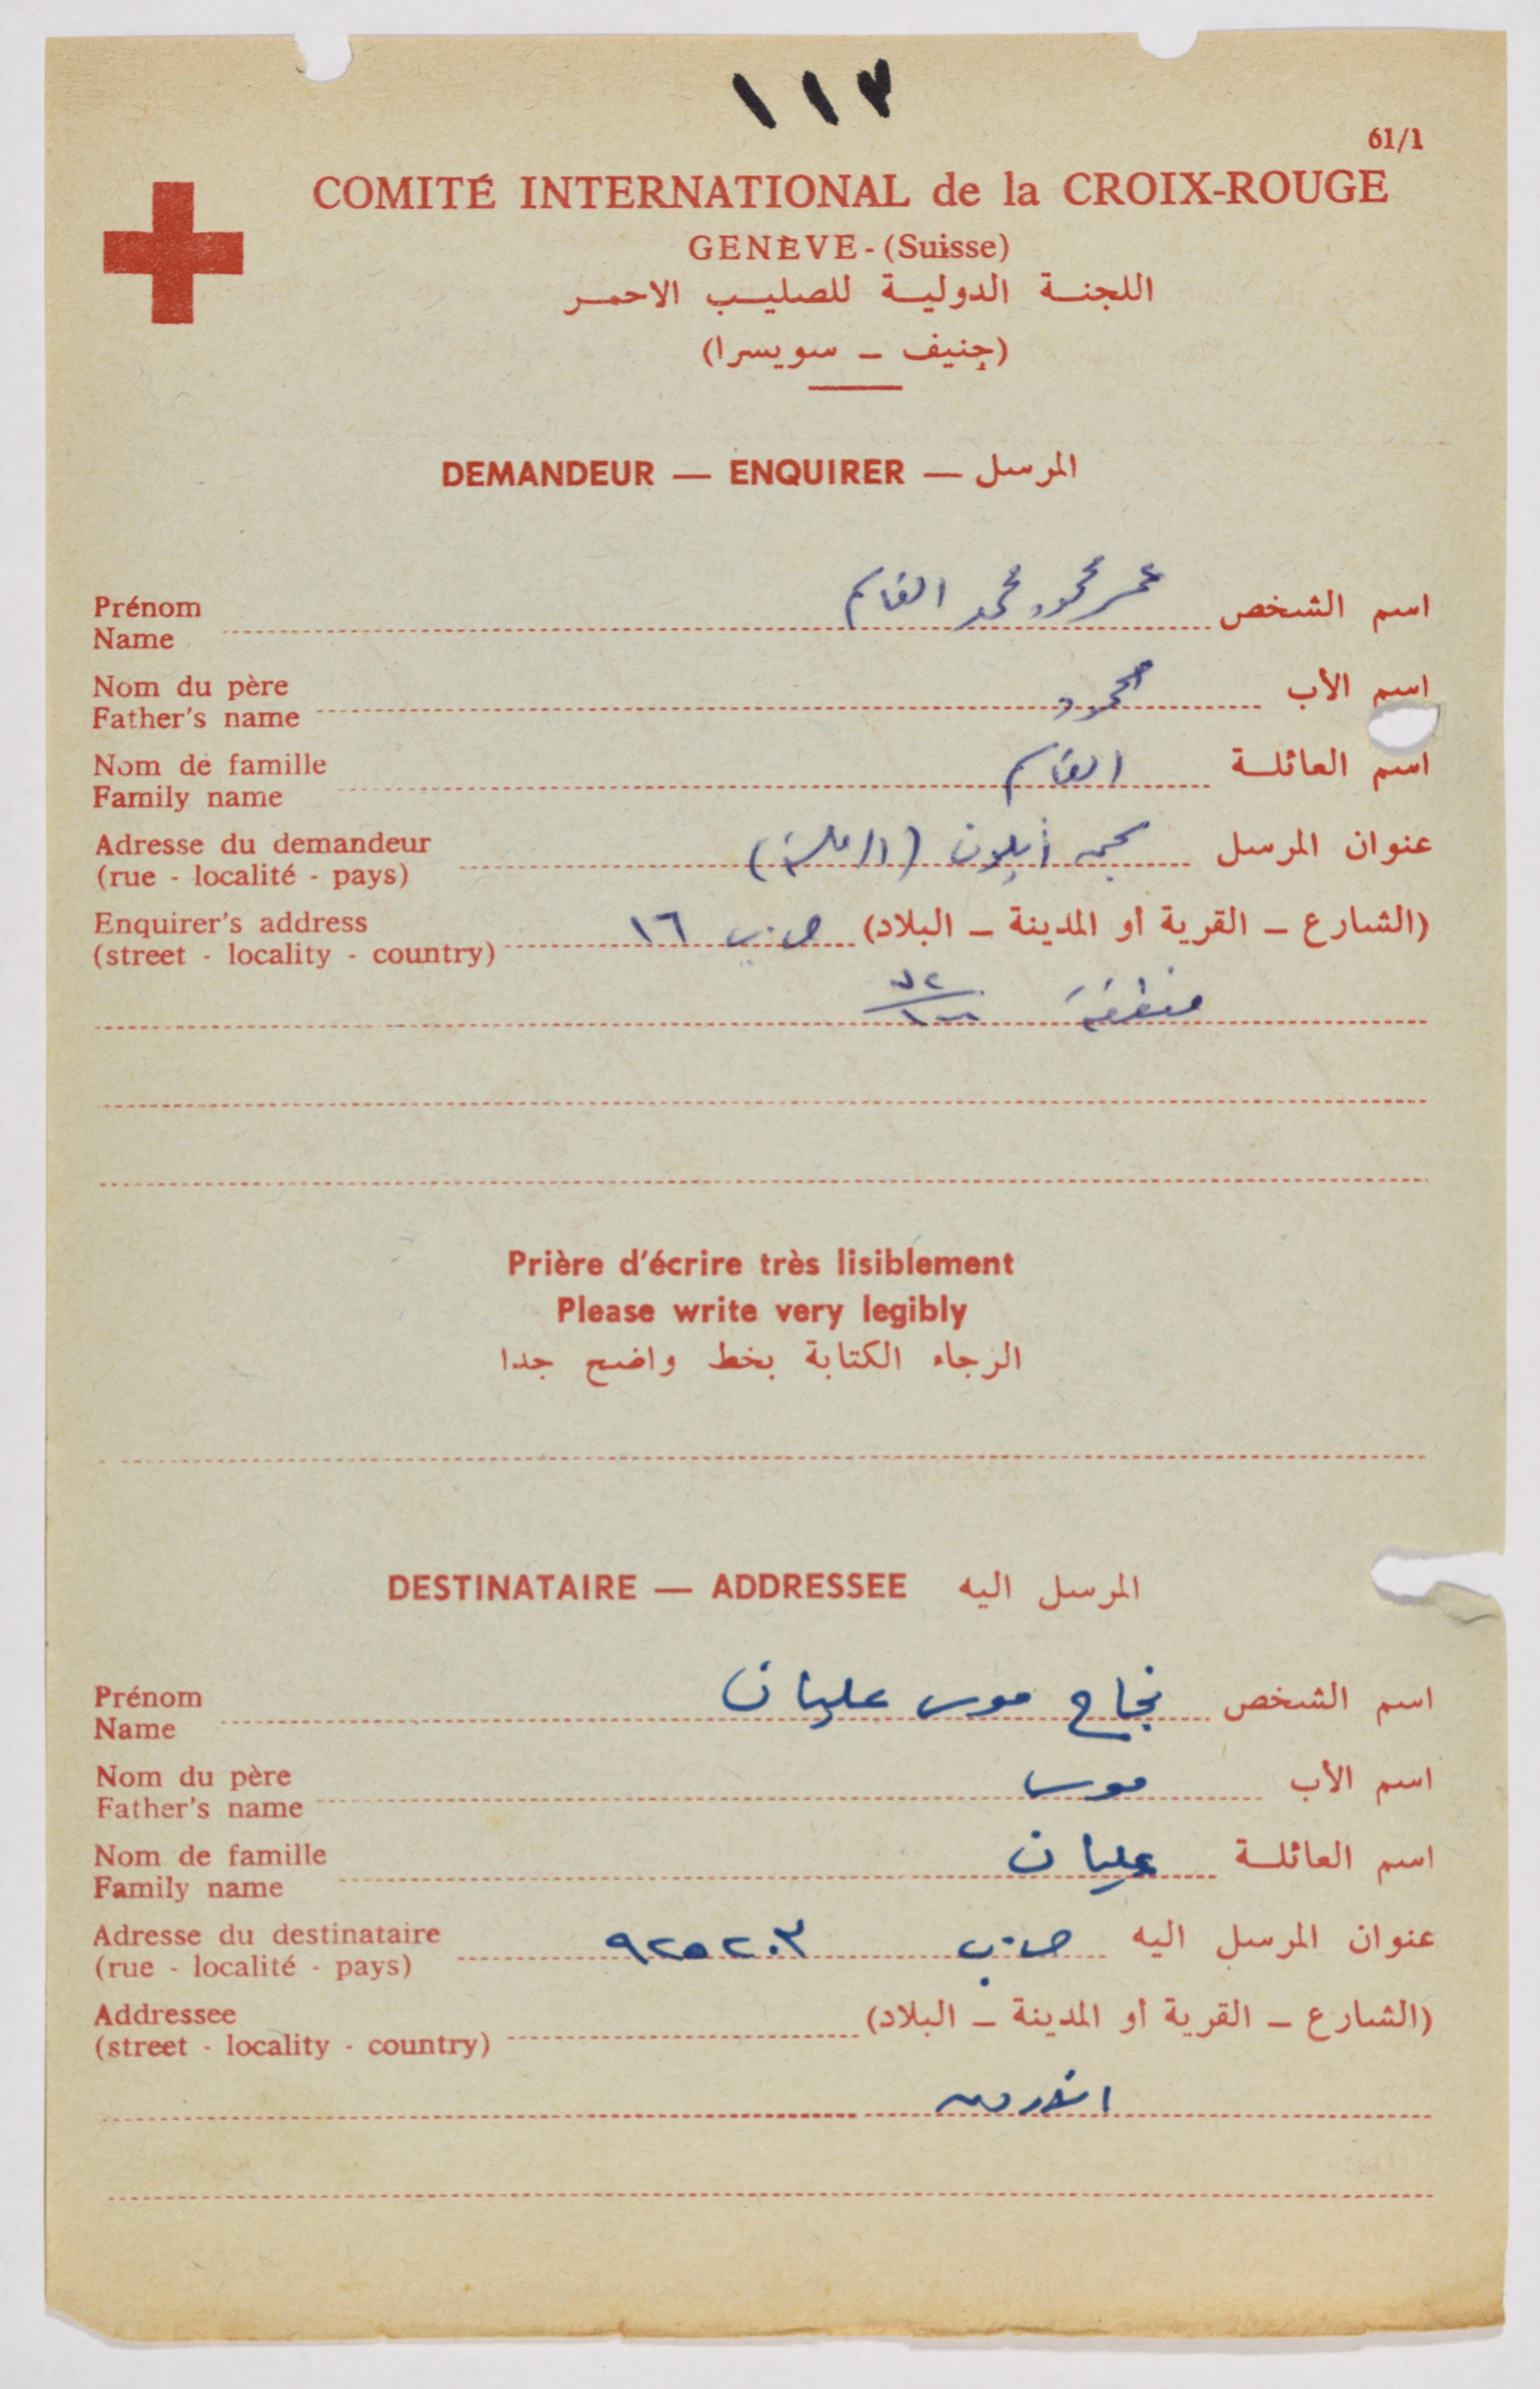 ١١٧
61/1
COMITÉ INTERNATIONAL de la CROIX-ROUGE
GENÈVE - (Suisse)
اللجنة الدولية للصليب الاحمر
(جنيف ــ سويسرا)
DEMANDEUR — ENQUIRER — المرسل
Prénom
Name
اسم الشخص عمر محمود محمد القاسم
Nom du père
Father's name
اسم الأب محمود
Nom de famille
Family name
اسم العائلة القاسم
Adresse du demandeur
(rue - localité - pays)
عنوان المرسل سجن أيلون (الرملة)
Enquirer's address
(street - locality - country)
(الشارع ــ القرية أو المدينة ــ البلاد) ص.ب ١٦
منطقة
Prière d'écrire très lisiblement
Please write very legibly
الرجاء الكتابة بخط واضح جدا
DESTINATAIRE — ADDRESSEE المرسل اليه
Prénom
Name
اسم الشخص نجاح موسى عليان
Nom du père
Father's name
اسم الأب موسى
Nom de famille
Family name
اسم العائلة عليان
Adresse du destinataire
(rue - localité - pays)
عنوان المرسل اليه ص.ب ٩٢٥٢٠٣
Addressee
(street - locality - country)
(الشارع ــ القرية أو المدينة ــ البلاد)